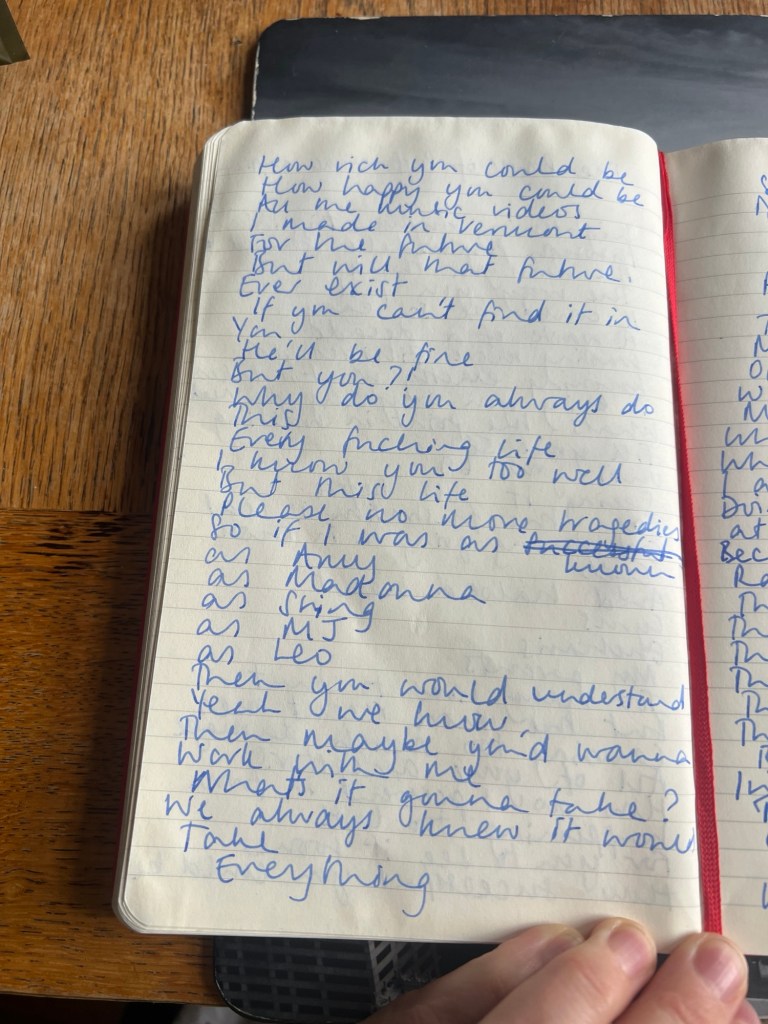 How rich you could be
How happy you could be
All the music videos
I made in Vermont
For the future
But will that future.
Ever exist
If you can't find it in
You
He'll be fine
But you?!
Why do you always do
This
Every fucking life
I know you too well
But this life
Please no more tragedies
So if I was as successful
known
as Amy
as Madonna
as Sting
as MJ
as Leo
Then you would understand
Yeah we know,
Then maybe you'd wanna
Work with me
What's it gunna take?
We always knew it would
Take
Everything